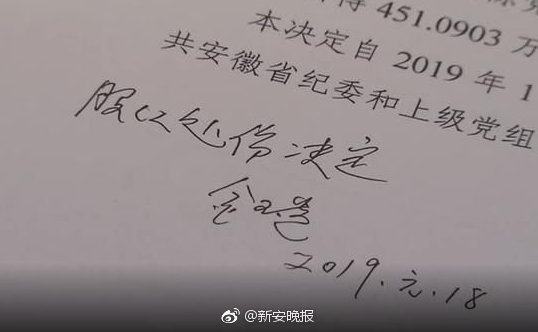 得 451.0903 万
本决定自 2019 年 1
共安徽省纪委和上级党组
服从处份决定
金
2019.元.18
@新安晚报